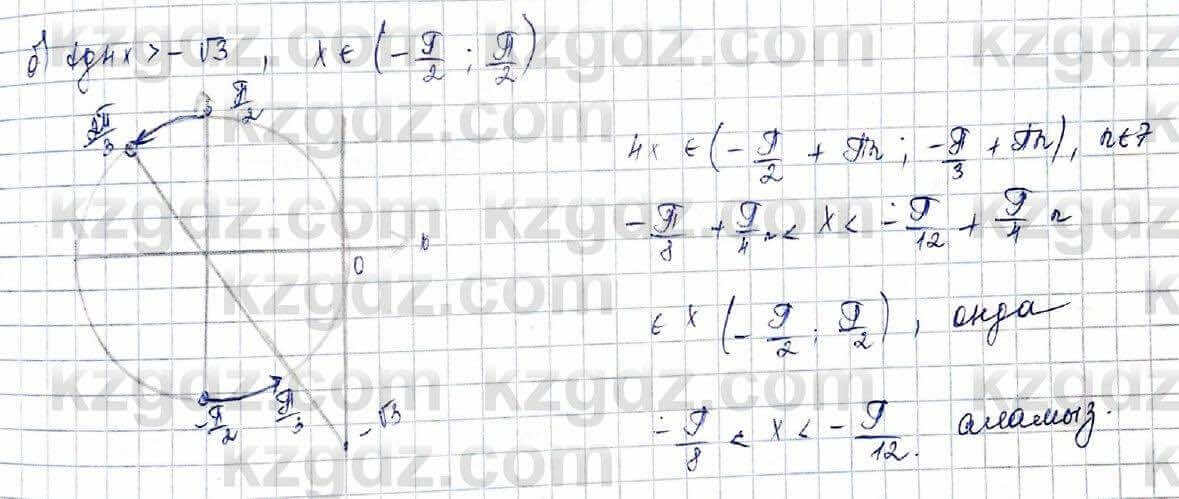 б) tg4x > -√3, x ∈ (-π/2 ; π/2)
π/2
2π/3
4x ∈ (-π/2 + πn ; -π/3 + πn), n ∈ Z
-π/8 + π/4 n < x < -π/12 + π/4 n
0
∈ x (-π/2 ; π/2), онда
-π/2
π/3
-√3
-π/8 < x < -π/12. аламыз.
kzgdz.com